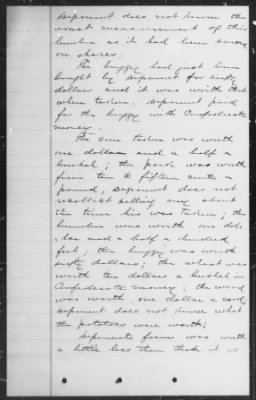 deponent does not know the
exact measurement of this
lumber as it had been sawed
on shares;
The buggy had just been
bought by deponent for sixty
dollars and it was worth that
when taken. deponent paid
for the buggy with Confederate
money.
The corn taken was worth
one dollar and a half a
bushel; the pork was worth
from ten to fifteen cents a
pound, deponent does not
recollect selling any about
the time his was taken; the
lumber was worth one dol-
lar and a half a hundred
feet; the buggy was worth
sixty dollars; the wheat was
worth ten dollars a bushel in
Confederate money; the wood
was worth one dollar a cord,
deponent does not know what
the potatoes were worth;
Deponents farm was worth
a little less then than it is